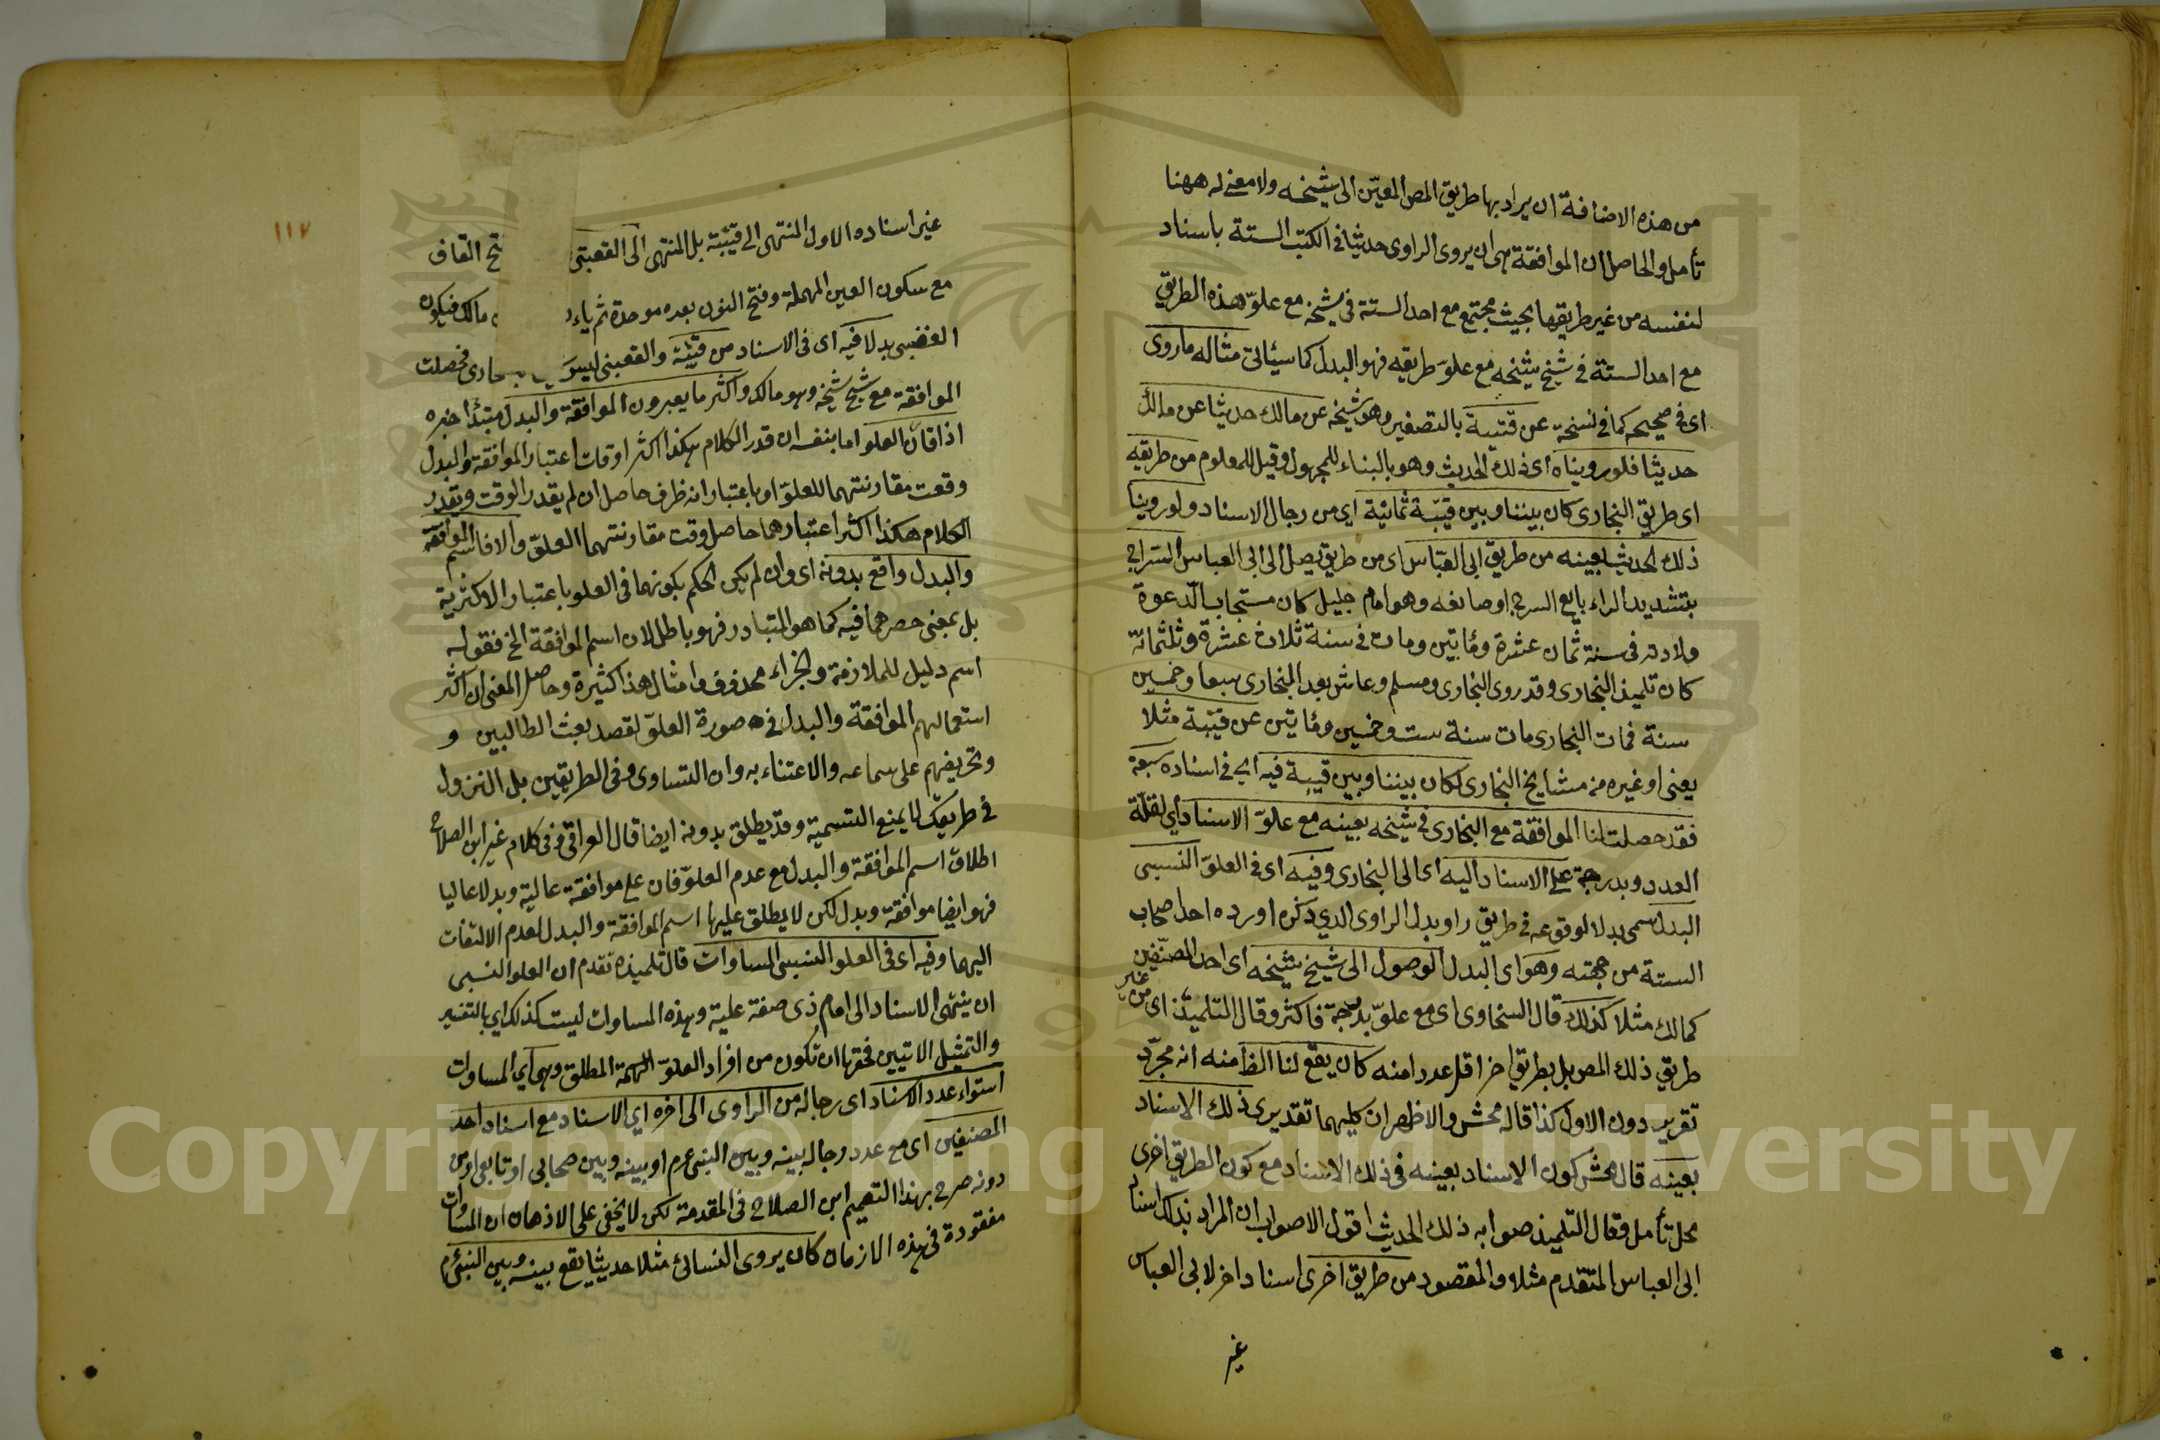 من هذه الاضافة ان يراد بها طريق المص المعين الى شيخه ولا معنى له ههنا
تأمل والحاصل ان الموافقة هى ان يروى الراوى حديثا فى الكتب الستة باسناد
لنفسه من غير طريقها بحيث يجتمع مع احد الستة فى شيخه مع علو هذه الطريق
مع احد الستة فى شيخ شيخه مع علو طريقه فهو البدل كما سيئاتى مثاله ما روى
اى فى صحيحه كما فى نسخة عن قتيبة بالتصغير وهو شيخه عن مالك حديثا عن مالك
حديثا فلو رويناه اى ذلك الحديث وهو بالبناء للمجهول وقيل للمعلوم من طريقه
اى طريق البخارى كان بيننا وبين قتيبة ثمانية اي من رجال الاسناد ولو روينا
ذلك الحديث بعينه من طريق ابى العباس اى من طريق يصل الى ابى العباس السراج
بتشديد الراء بايع السرج او صانعه وهو امام جليل كان مستجاب الدعوة
ولادته فى سنة ثمان عشرة ومايتين ومات فى سنة ثلاث عشرة وثلثمائة
كان تلميذ البخارى وقد روى البخارى ومسلم وعاش بعد البخارى سبعا وخمسين
سنة فمات البخارى مات سنة ست وخمسين ومايتين عن قتيبة مثلا
يعنى او غيره من مشايخ البخارى لكان بيننا وبين قتيبة فيه اي فى اسناده سبعة
فقد حصلت لنا الموافقة مع البخارى فى شيخه بعينه مع علو الاسناد اي لقلة
العدد وبدرجة على الاسناد اليه اى الى البخارى وفيه اى فى العلو النسبى
البدل سمى بدلا لوقوعه فى طريق راو بدل الراوى الذي ذكره اورده احد اصحاب
الستة من جهته وهو اى البدل الوصول الى شيخ شيخه اى احد المصنفين
كمالك مثلا كذلك قال السخاوى اى مع علو بدرجة فاكثر وقال التلميذ اى من غير
طريق ذلك المص بل بطريق اخر اقل عددا منه كان يقع لنا الظ منه انه مجرد
تقرير دون الاول كذا قاله محش والاظهر ان كليهما تقديرى ذلك الاسناد
بعينه قال محش كون الاسناد بعينه فى ذلك الاسناد مع كون الطريق اخرى
محل تأمل وقال التلميذ صوابه ذلك الحديث اقول الاصواب ان المراد بذلك اسناد
ابى العباس المتقدم مثلا والمقصود من طريق اخرى اسناد اخر لابى العباس
غير
١١٧
غير اسناده الاول المنتهى الى قتيبة بل المنتهى الى القعبنى تح القاف
مع سكون العين المهملة وفتح النون بعده موحدة ثم ياء مالك فيكون
القعنبى بدلا فيه اى فى الاسناد من قتيبة والقعبنى ليس خارى فحصلت
الموافقة مع شيخ شيخه وهو مالك واكثر ما يعبرون الموافقة والبدل مبتدأ خبره
اذا قارن العلو اما بنفـ ان قدر الكلام هكذا اكثر اوقات اعتبار الموافقة والبدل
وقعت مقارنتهما للعلو او باعتبار انه ظرف حاصل ان لم يقدر الوقت ويقدر
الكلام هكذا اكثر اعتبارهما حاصل وقت مقارنتهما العلو والا فاسم الموافقة
والبدل واقع بدونه اى وان لم يكن الحكم بكونهما فى العلو باعتبار الاكثرية
بل بمعنى حصرهما فيه كما هو المتبادر فهو باطل لان اسم الموافقة الخ فقوله
اسم دليل للملازمة والجزاء محذوف وامثال هذا كثيرة وحاصل المعنى ان اكثر
استعمالهم الموافقة والبدل فى صورة العلو لقصد بعث الطالبين و
وتحريضهم على سماعه والاعتناء به وان التساوى فى الطريقين بل النزول
فى طريقك لا يمنع التسمية وقد يطلق بدونه ايضا قال العراقى وفى كلام غير ابن الصلاح
اطلاق اسم الموافقة والبدل مع عدم العلو فان علا موافقة عالية وبدلا عاليا
فهو ايضا موافقة وبدل لكن لا يطلق عليها اسم الموافقة والبدل لعدم الالتفات
اليهما وفيه اى فى العلو النسبى المساوات قال تلميذه تقدم ان العلو النسبى
ان ينتهى الاسناد الى امام ذى صفة علية وهذه المساوات ليست كذلك اي بالتفسير
والتمثيل الاتيين فحقها ان تكون من افراد العلو المطلق وهى اي المساوات
استواء عدد الاسناد اى رجاله من الراوى الى اخره اي الاسناد مع اسناد احد
المصنفين اى مع عدد رجاله بينه وبين النبى عم او بينه وبين صحابى او تابعى او من
دونه صرح بهذا التعميم ابن الصلاح فى المقدمة لكن لا يخفى على الاذهان ان المساوات
مفقودة فى هذه الازمان كان يروى النسائى مثلا حديثا يقع بينه وبين النبى م